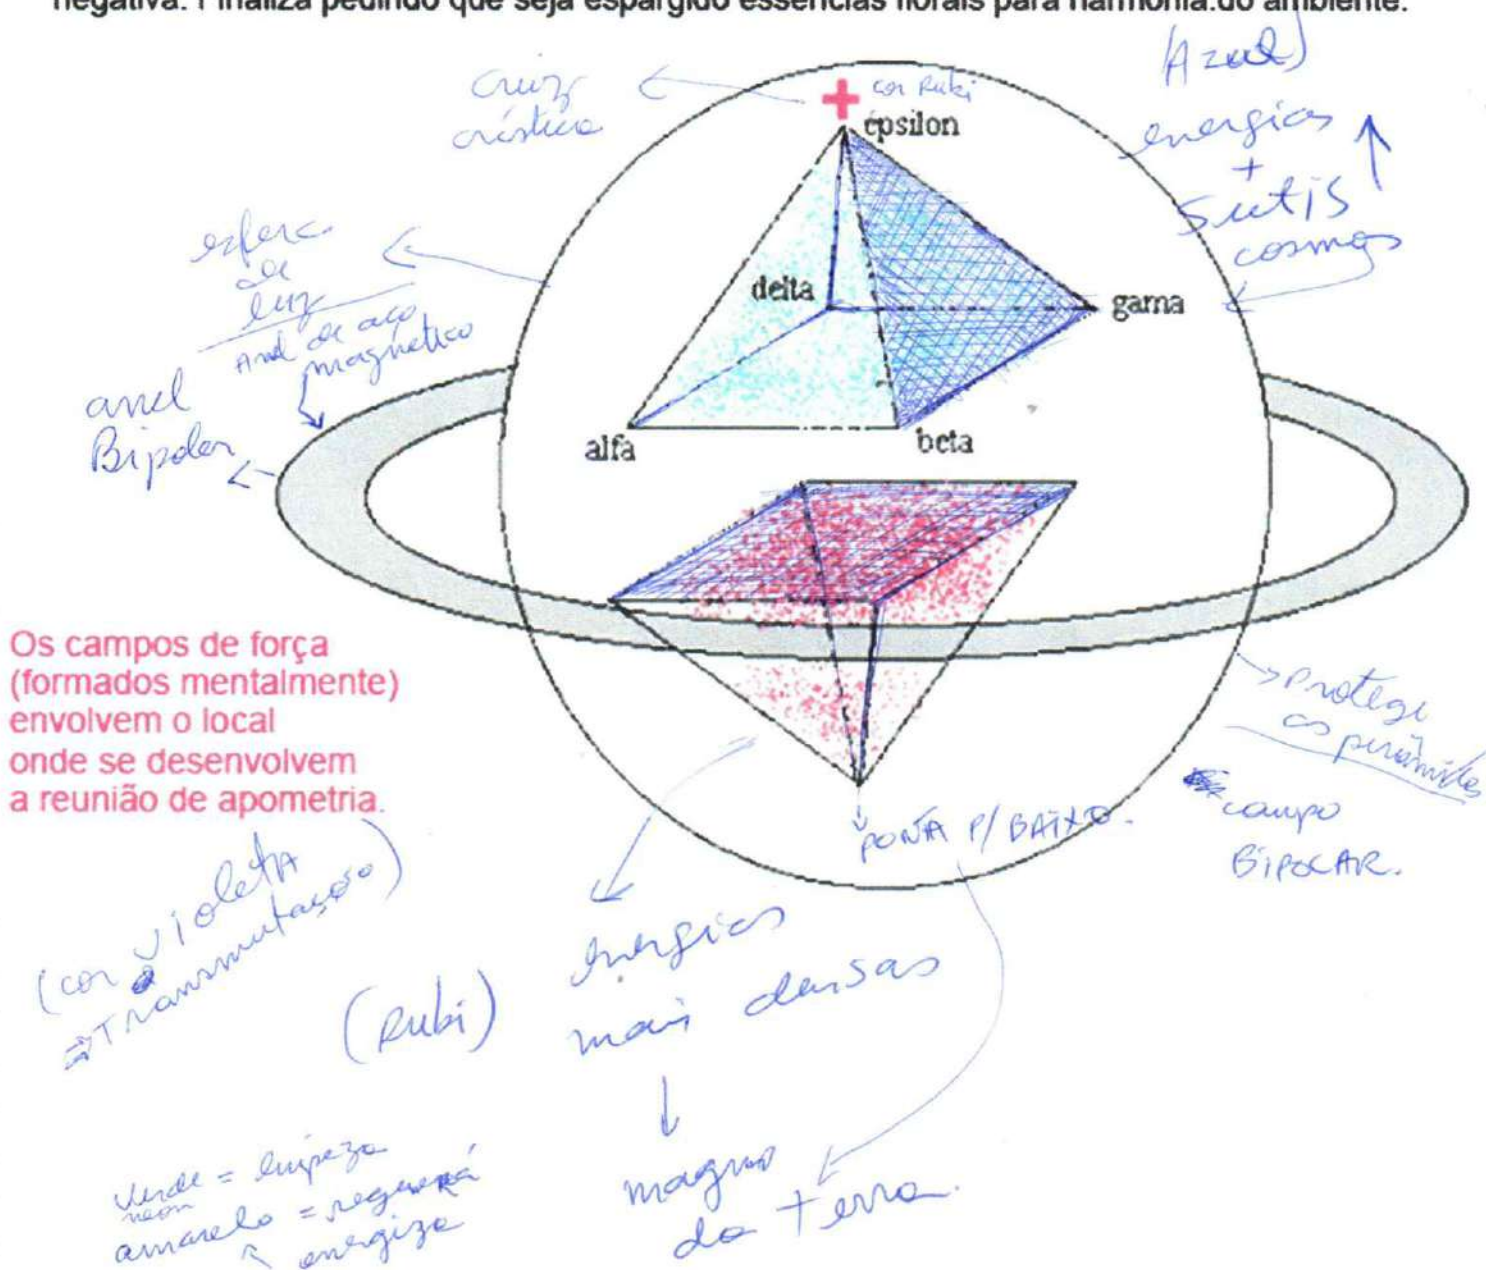 negativa. Finaliza pedindo que seja espargido essências florais para harmonia.do ambiente.
(Azul)
energias
+
sutis
cosmos
cruz
crística
cor Rubi
épsilon
esfera
de
luz
Anel de aço
magnético
anel
Bipolar
delta
gama
alfa
beta
Os campos de força
(formados mentalmente)
envolvem o local
onde se desenvolvem
a reunião de apometria.
protege
as pirâmides
campo
BIPOLAR.
PONTA P/ BAIXO.
(cor violeta
⇒ Transmutação)
(Rubi)
energias
mais densas
magma
da terra.
verde = limpeza
neon
amarelo =
energiza